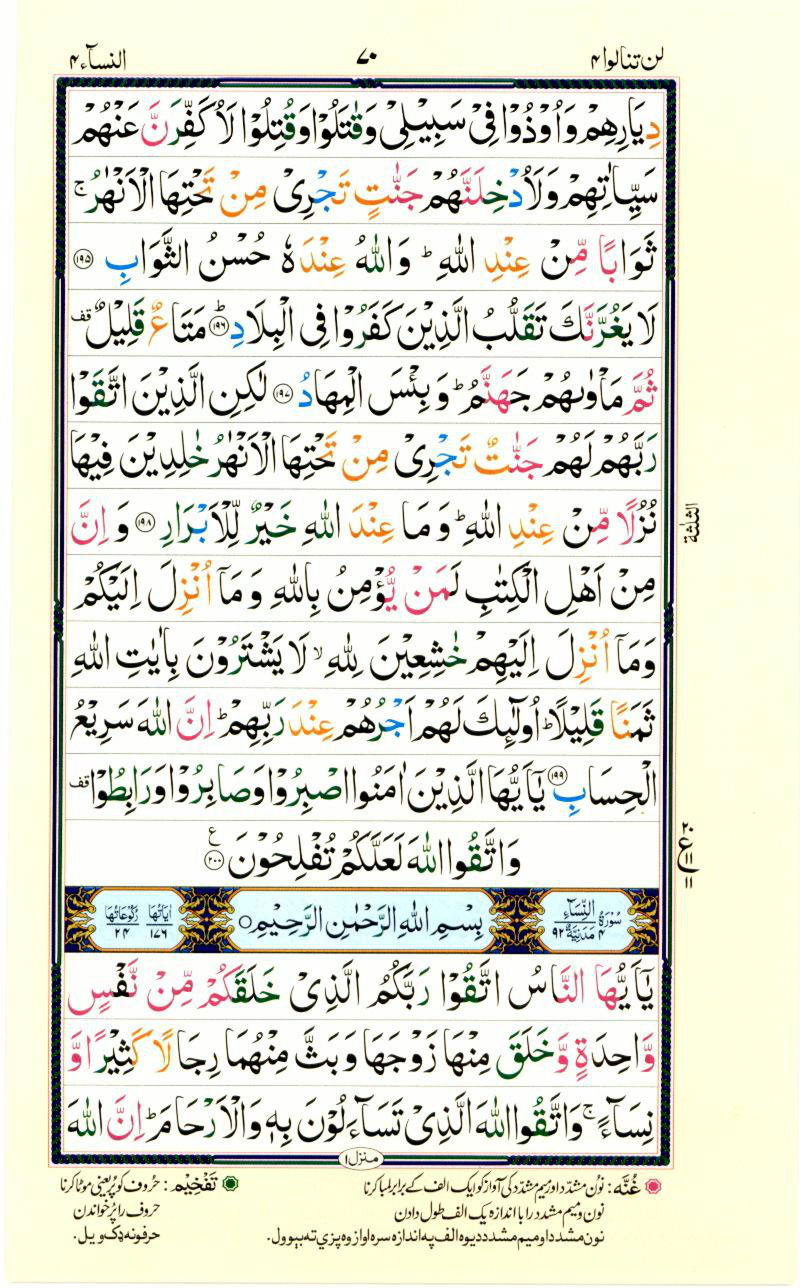 لن تنالوا ۴ ۷۰ النسآء ۴
دِيَارِهِمْ وَاُوْذُوْا فِىْ سَبِيْلِىْ وَقٰتَلُوْا وَقُتِلُوْا لَاُكَفِّرَنَّ عَنْهُمْ
سَيِّاٰتِهِمْ وَلَاُدْخِلَنَّهُمْ جَنّٰتٍ تَجْرِىْ مِنْ تَحْتِهَا الْاَنْهٰرُ ۚ
ثَوَابًا مِّنْ عِنْدِ اللّٰهِ ؕ وَاللّٰهُ عِنْدَهٗ حُسْنُ الثَّوَابِ ۝۱۹۵
لَا يَغُرَّنَّكَ تَقَلُّبُ الَّذِيْنَ كَفَرُوْا فِى الْبِلَادِ ؕ۝۱۹۶ مَتَاعٌ قَلِيْلٌ قف
ثُمَّ مَاْوٰىهُمْ جَهَنَّمُ ؕ وَبِئْسَ الْمِهَادُ ۝۱۹۷ لٰكِنِ الَّذِيْنَ اتَّقَوْا
رَبَّهُمْ لَهُمْ جَنّٰتٌ تَجْرِىْ مِنْ تَحْتِهَا الْاَنْهٰرُ خٰلِدِيْنَ فِيْهَا
نُزُلًا مِّنْ عِنْدِ اللّٰهِ ؕ وَمَا عِنْدَ اللّٰهِ خَيْرٌ لِّلْاَبْرَارِ ۝۱۹۸ وَاِنَّ
الثلثة
مِنْ اَهْلِ الْكِتٰبِ لَمَنْ يُّؤْمِنُ بِاللّٰهِ وَمَاۤ اُنْزِلَ اِلَيْكُمْ
وَمَاۤ اُنْزِلَ اِلَيْهِمْ خٰشِعِيْنَ لِلّٰهِ ۙ لَا يَشْتَرُوْنَ بِاٰيٰتِ اللّٰهِ
ثَمَنًا قَلِيْلًا ؕ اُولٰٓئِكَ لَهُمْ اَجْرُهُمْ عِنْدَ رَبِّهِمْ ؕ اِنَّ اللّٰهَ سَرِيْعُ
الْحِسَابِ ۝۱۹۹ يٰۤاَيُّهَا الَّذِيْنَ اٰمَنُوا اصْبِرُوْا وَصَابِرُوْا وَرَابِطُوْا قف
وَاتَّقُوا اللّٰهَ لَعَلَّكُمْ تُفْلِحُوْنَ ۝۲۰۰ ع
۲۰ ع ۱۱ ۱۱
سُوْرَةُ النِّسَآءِ ۴ مَدَنِيَّةٌ ۹۲
بِسْمِ اللّٰهِ الرَّحْمٰنِ الرَّحِيْمِ ۝
اٰيَاتُهَا ۱۷۶ رُكُوْعَاتُهَا ۲۴
يٰۤاَيُّهَا النَّاسُ اتَّقُوْا رَبَّكُمُ الَّذِىْ خَلَقَكُمْ مِّنْ نَّفْسٍ
وَّاحِدَةٍ وَّخَلَقَ مِنْهَا زَوْجَهَا وَبَثَّ مِنْهُمَا رِجَالًا كَثِيْرًا وَّ
نِسَآءً ۚ وَاتَّقُوا اللّٰهَ الَّذِىْ تَسَآءَلُوْنَ بِهٖ وَالْاَرْحَامَ ؕ اِنَّ اللّٰهَ
منزل ۱
غُنَّه : نوُن مشدّد اور میم مشدّد کی آواز کو ایک الف کے برابر لمبا کرنا
نون و میم مشدد را با اندازه یک الف طول دادن
نون مشدد او میم مشدد دیوه الف په اندازه سره اواز وه پزې ته بېوول.
تَفْخِیْم : حُروف کو پُر یعنی موٹا کرنا
حروف را پُر خواندن
حرفونه ډک ویل.